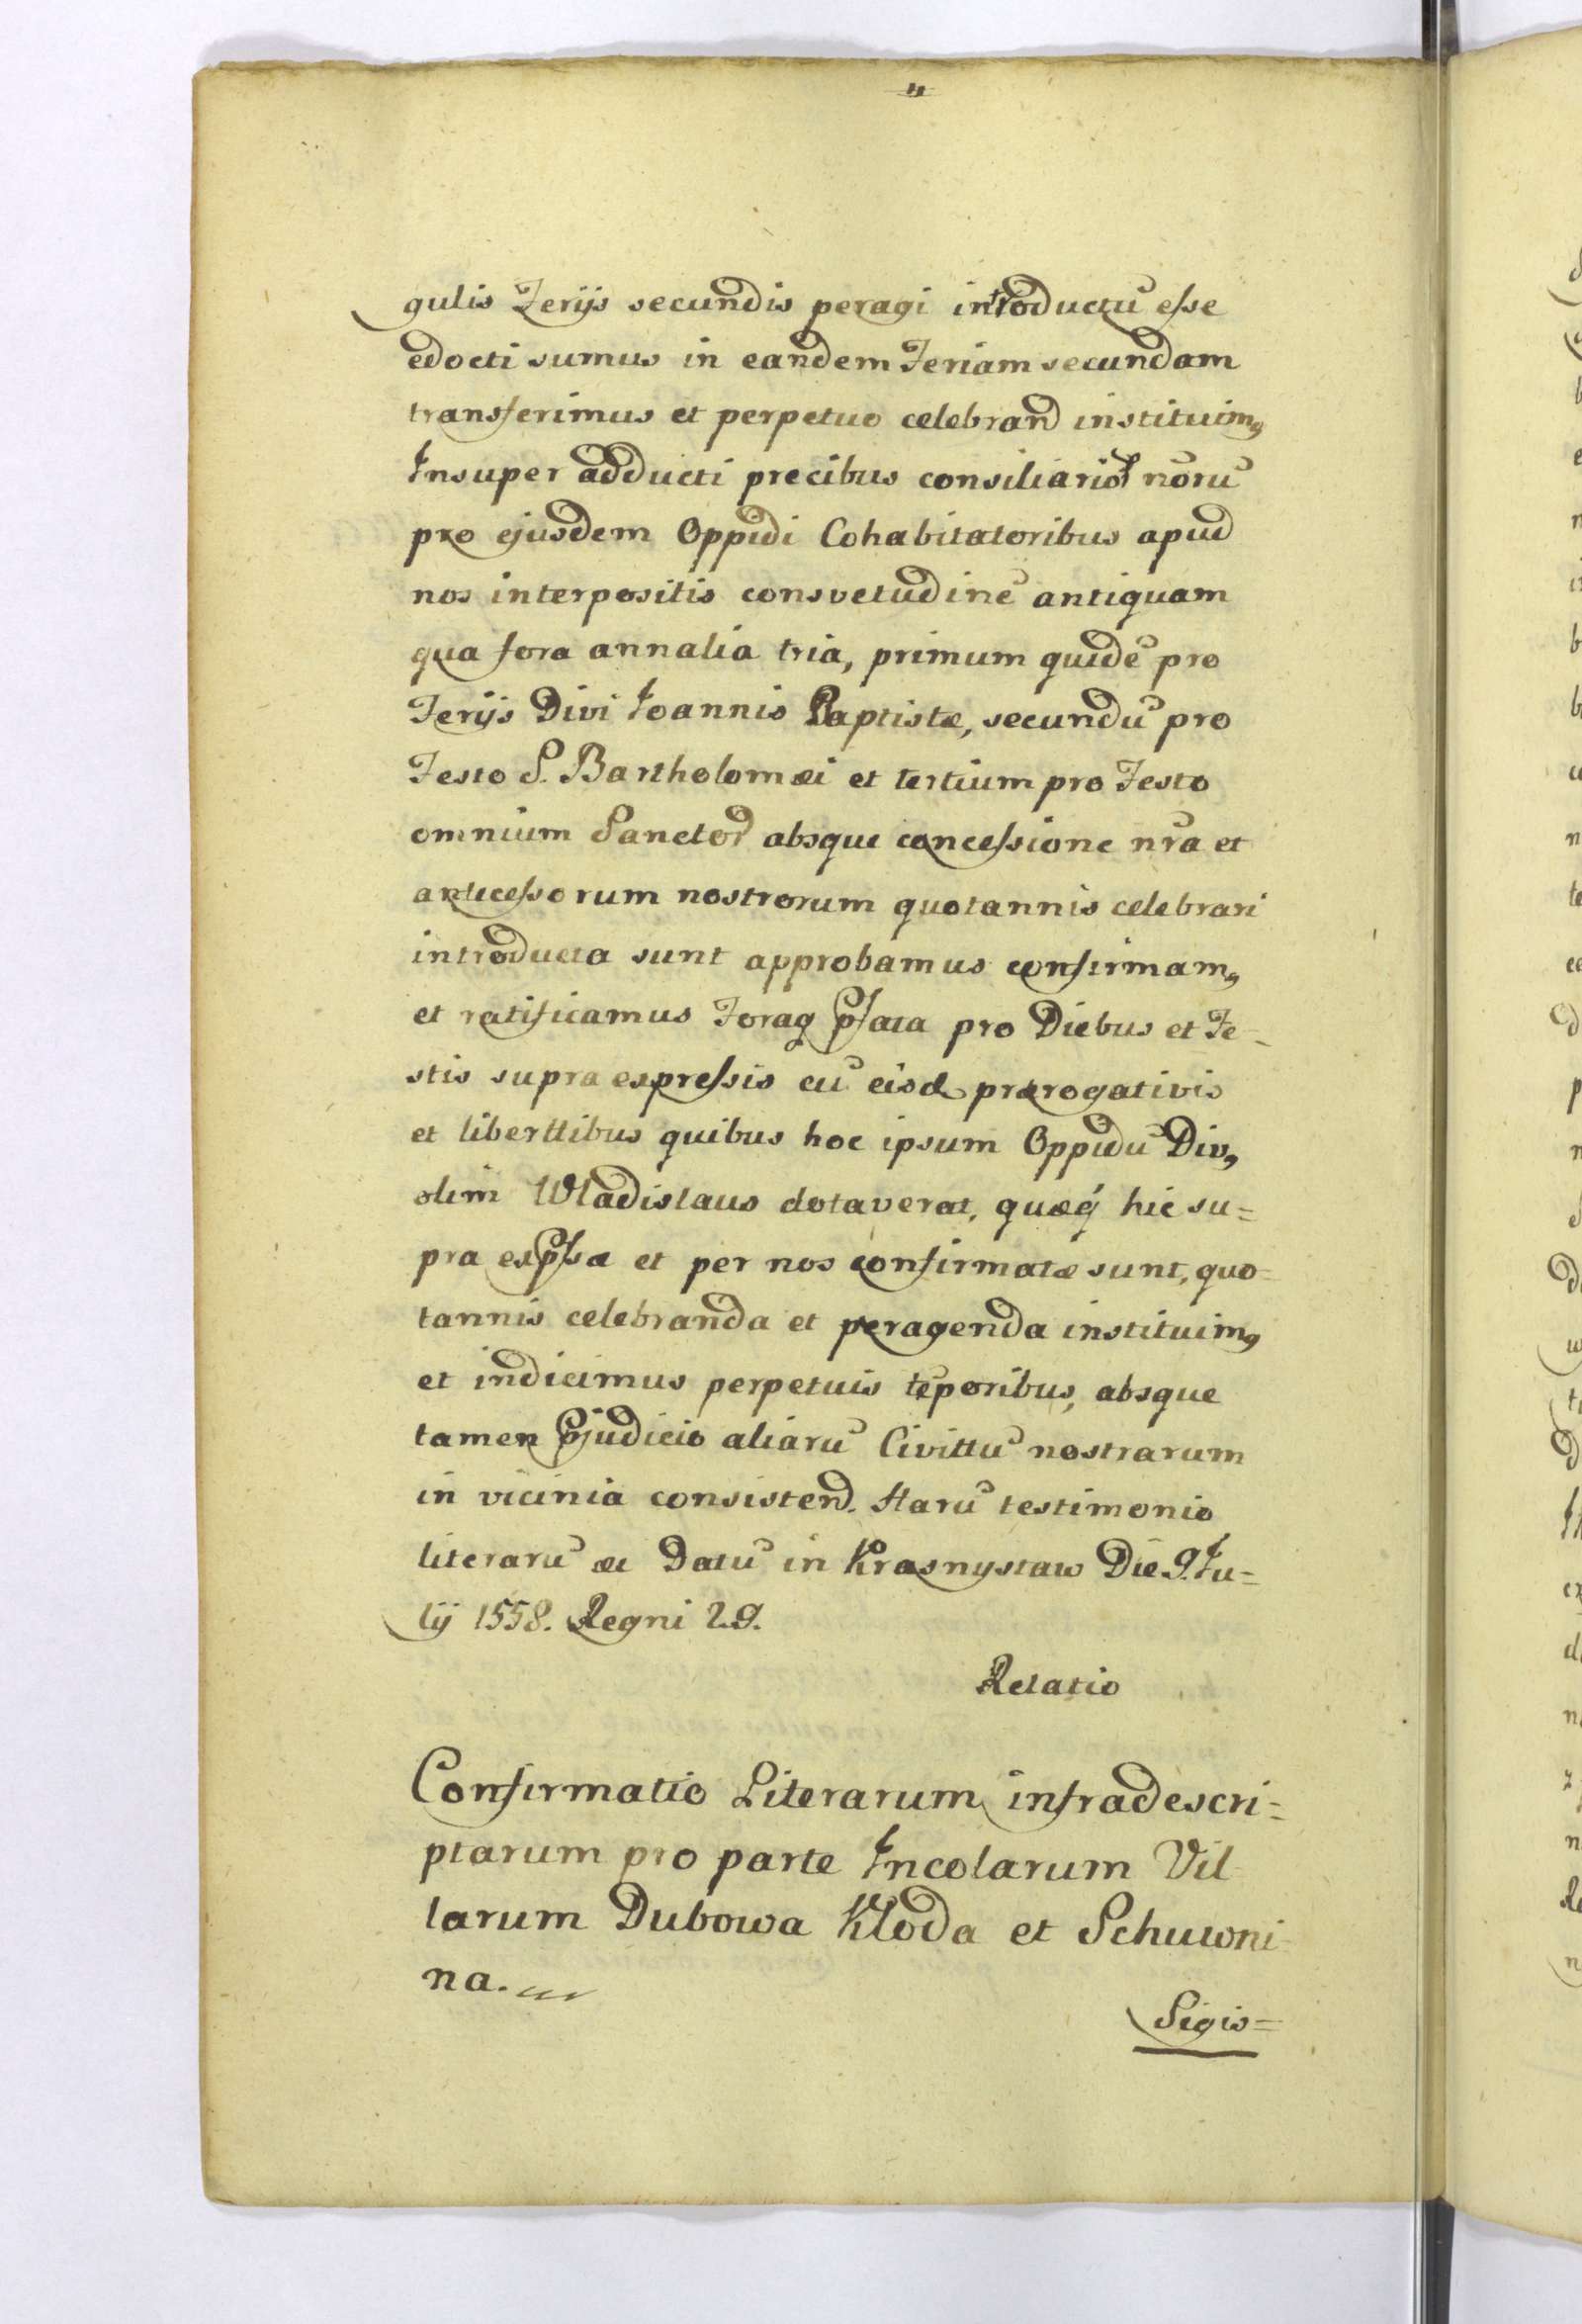 gulis Ferijs secundis peragi introductū esse
edocti sumus in eandem Feriam secundam
transferimus et perpetuo celebrand instituimꝰ
Insuper adducti precibus consiliarioꝝ nōrū
pro ejusdem Oppidi Cohabitatoribus apud
nos interpositis consvetudinē antiquam
qua fora annalia tria, primum quidē pro
Ferijs Divi Ioannis Baptistæ, secundū pro
Festo S. Bartholomæi et tertium pro Festo
omnium Sanctoꝝ absque concessione nr̄a et
antecessorum nostrorum quotannis celebrari
introducta sunt approbamus confirmamꝰ
et ratificamus Foraq pfata pro Diebus et Fe-
stis supra expressis cū eisd prærogativis
et liberttibus quibus hoc ipsum Oppidū Divꝰ
olim Wladislaus dotaverat, quæq́ hic su=
pra expssæ et per nos confirmatæ sunt, quo=
tannis celebranda et peragenda instituimꝰ
et indicimus perpetuis tēporibus, absque
tamen pjudicio aliarū Civittū nostrarum
in vicinia consistend. Harū testimonio
literarū &c Datū in Krasnystaw Die 9. Iu=
lij 1558. Regni 29.
Relatio
Confirmatio Literarum infradescri=
ptarum pro parte Incolarum Vil-
larum Dubowa Kłoda et Schuwni-
na.
Sigis=